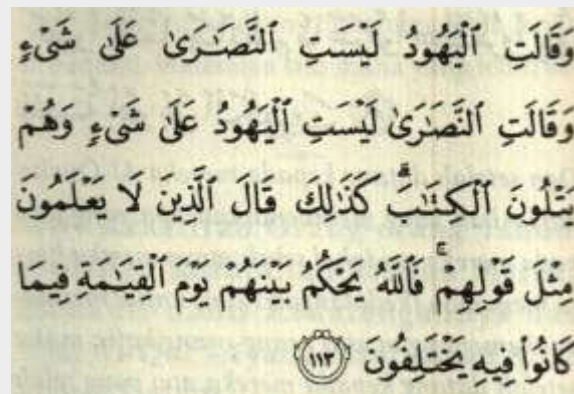 وَقَالَتِ ٱلْيَهُودُ لَيْسَتِ ٱلنَّصَٰرَىٰ عَلَىٰ شَىْءٍ
وَقَالَتِ ٱلنَّصَٰرَىٰ لَيْسَتِ ٱلْيَهُودُ عَلَىٰ شَىْءٍ وَهُمْ
يَتْلُونَ ٱلْكِتَٰبَ ۗ كَذَٰلِكَ قَالَ ٱلَّذِينَ لَا يَعْلَمُونَ
مِثْلَ قَوْلِهِمْ ۚ فَٱللَّهُ يَحْكُمُ بَيْنَهُمْ يَوْمَ ٱلْقِيَٰمَةِ فِيمَا
كَانُوا۟ فِيهِ يَخْتَلِفُونَ ١١٣